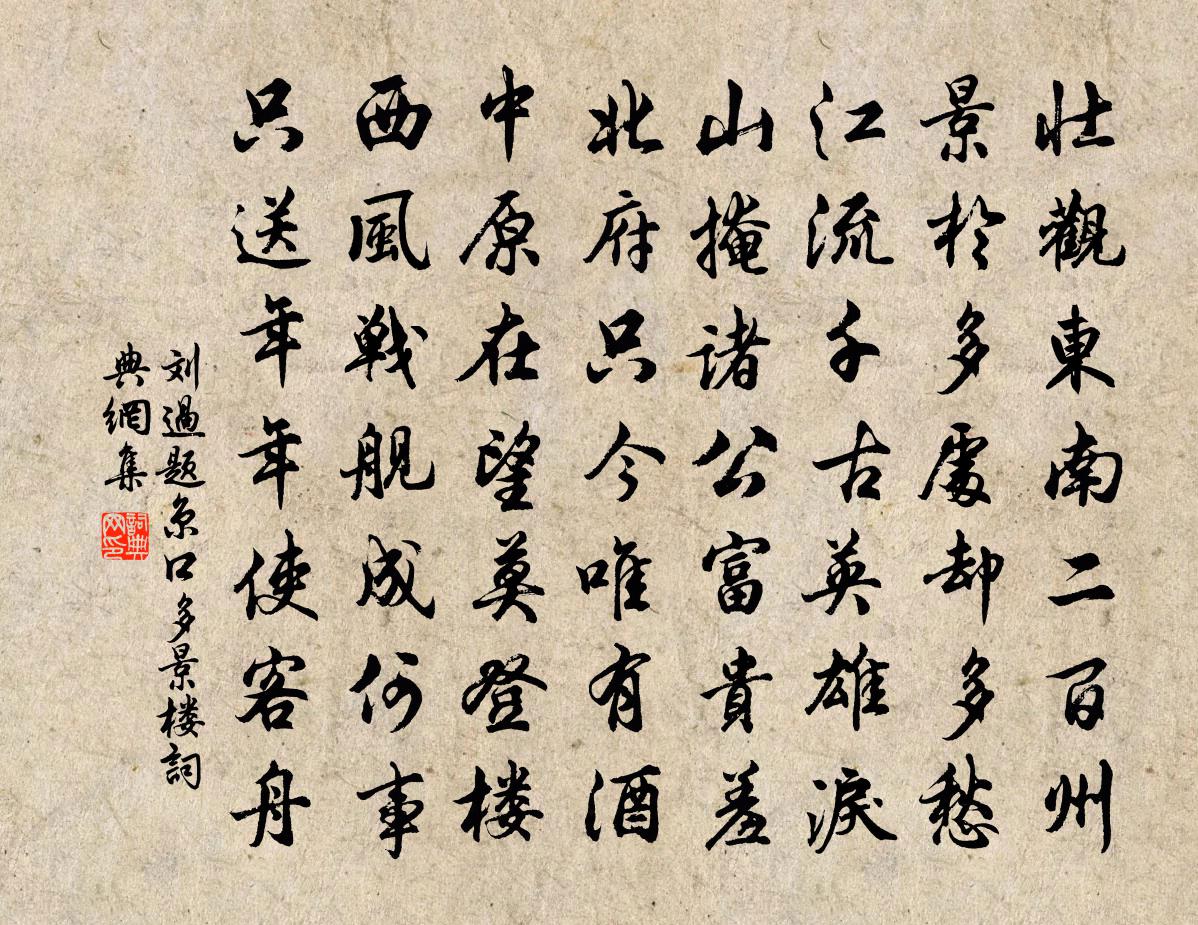 壯觀東南二百州
景於多處却多愁
江流千古英雄淚
山掩諸公富貴羞
北府只今唯有酒
中原在望莫登楼
西風戰舰成何事
只送年年使客舟
刘過题京口多景楼詞
典網集
詞典
网印